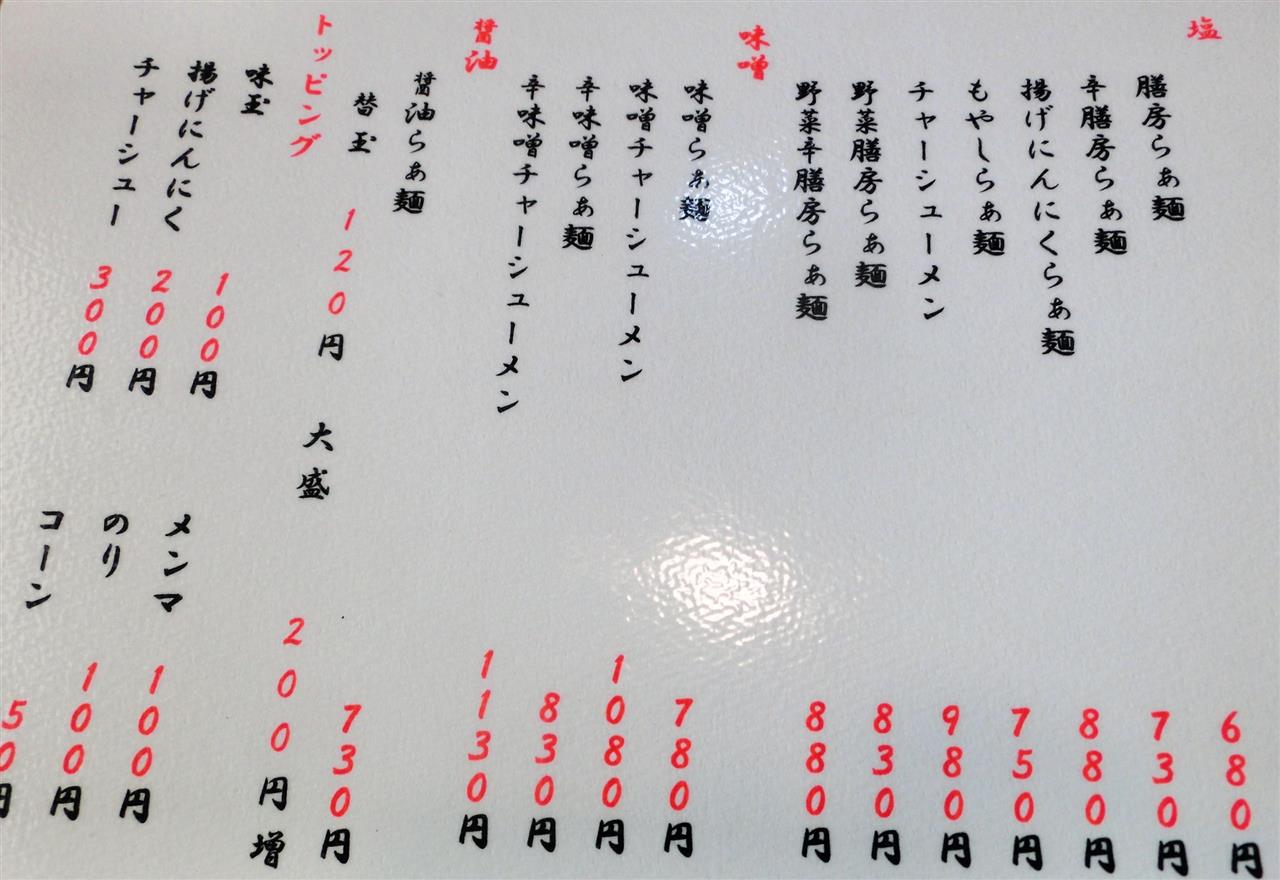 塩
膳房らぁ麺 680円
辛膳房らぁ麺 730円
揚げにんにくらぁ麺 880円
もやしらぁ麺 750円
チャーシューメン 980円
野菜膳房らぁ麺 830円
野菜辛膳房らぁ麺 880円
味噌
味噌らぁ麺 780円
味噌チャーシューメン 1080円
辛味噌らぁ麺 830円
辛味噌チャーシューメン 1130円
醤油
醤油らぁ麺 730円
替玉 120円 大盛 200円増
トッピング
味玉 100円 メンマ 100円
揚げにんにく 200円 のり 100円
チャーシュー 300円 コーン 50円